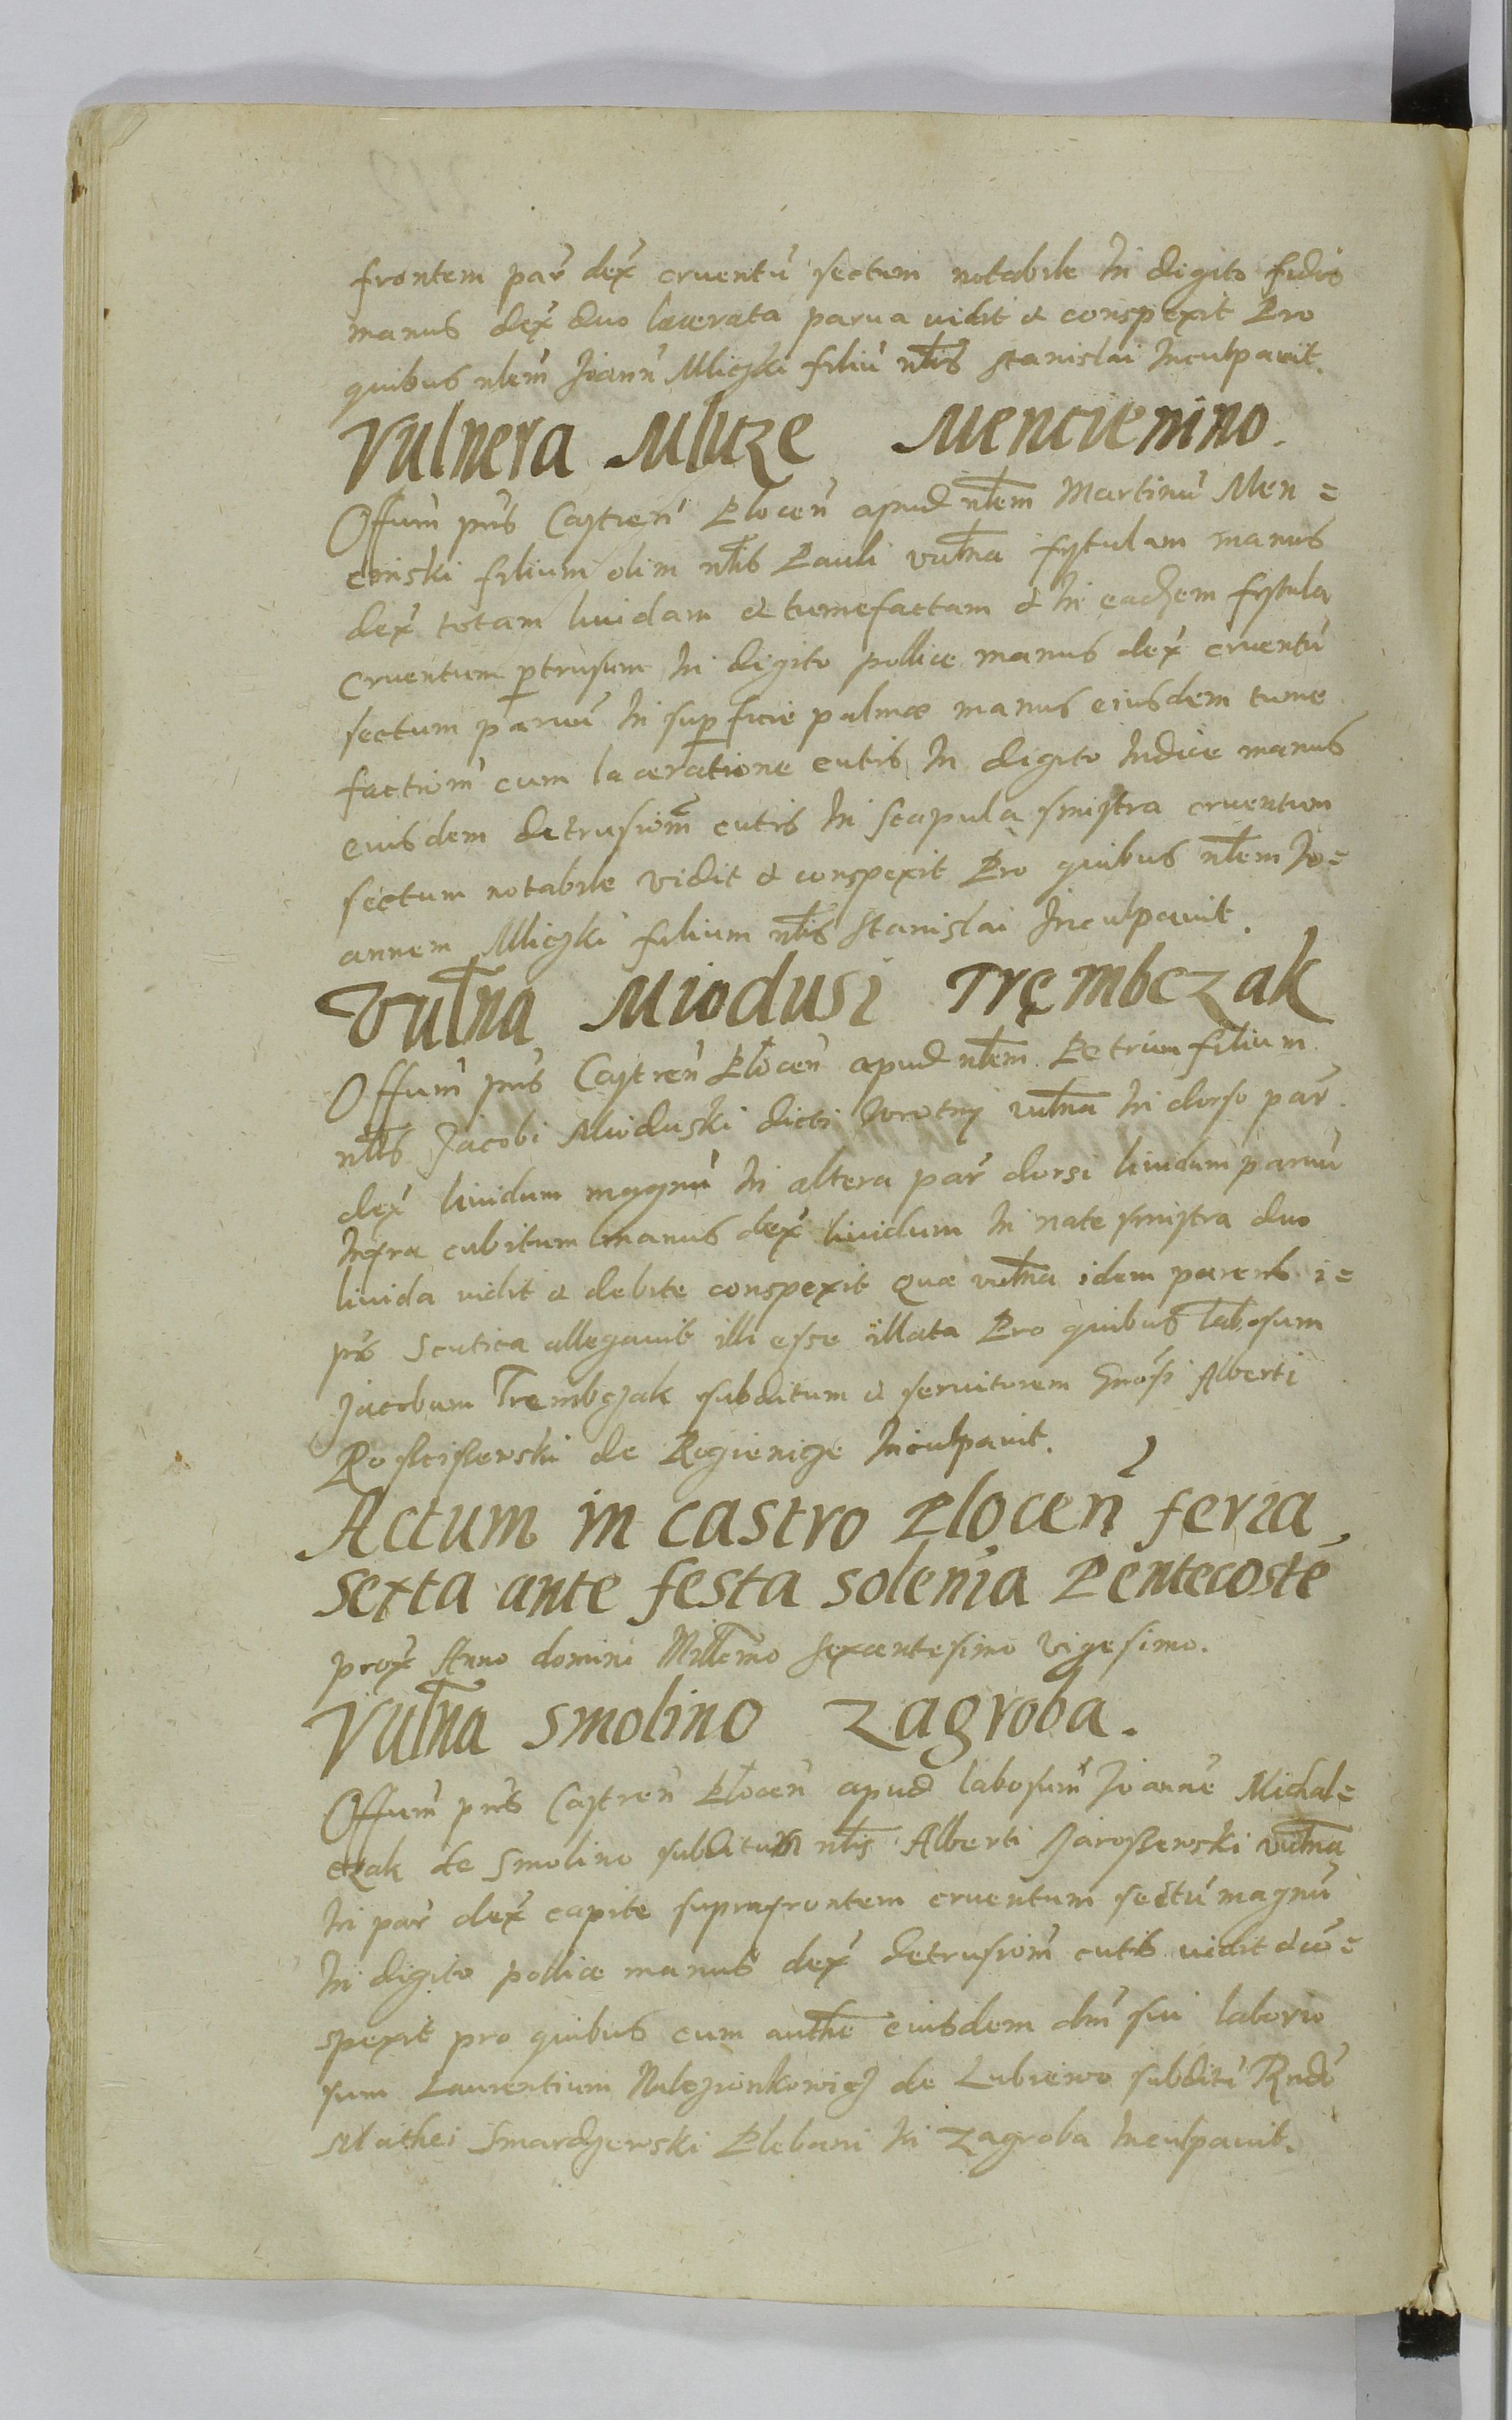 frontem par̃ dex̃ cruentũ sectum notabile In digito
manus dex̃ duo lacerata parua vidit & conspexit Pro
quibus nlem̃ Joann̄ Mliczki filiũ nlis Stanislai Inculpauit.
Vulnera Mlicze Mencienino.
Offium̃ pn̄s Castren̄ Plocen̄ apud nlem Martinũ Men=
cinski filium olim nlis Pauli vulna fystulam manus
dex̃ totam liuidam & tumefactam & In eadem fystula
cruentum ptrusum In digito pollice manus dex̃ cruentũ
sectum paruũ In superficie palmæ manus eiusdem tume
factiom̃ cum laceratione cutis In digito Indice manus
euisdem detrusiom̃ cutis In scapula sinistra cruentum
sectum notabile vidit & conspexit Pro quibus nlem Jo=
annem Mliczki filium nlis Stanislai Inculpauit.
Vulna Miodusi Tręmbczak
Offium̃ pn̄s Castren̄ Plocen̄ apud nlem Petrum filium
nlis Jacobi Mioduski dicti Wrotny vulna In dorso par̃
dex̃ liuidum magnũ In altera par̃ dorsi liuidum paruũ
Infra cubitum manus dex̃ liuidum In nate sinistra duo
liuida vidit & debite conspexit Quæ vulna idem parens i=
psi̅s Scutica allegauit illi esse illata Pro quibus labosum
Jacobum Trembczak subditum & seruitorem Gnosi Alberti
Rosciszewski de Rogienicze Inculpauit.
Actum in castro Plocen̄ feria
sexta ante festa solenia Pentecostẽ
prox̃ Anno domini Millemo Sexcentesimo Vigesimo.
Vulna Smolino Zagroba.
Offium̃ pn̄s Castren̄ Plocen̄ apud labosum̃ Joannẽ Michal=
czak de Smolino subditum nlis Alberti Jaroszewski vulna
In par̃ dex̃ capite supra frontem cruentum sectũ magnũ
In digito pollice manus dex̃ detrusiom̃ cutis vidit & cõ=
spexit pro quibus cum authe eiusdem dn̄i sui laborio
sum Laurentium Nalezionkowicz de Lubiewo subditũ Rndi
Mathei Smardzewski Plebani In Zagroba Inculpauit.